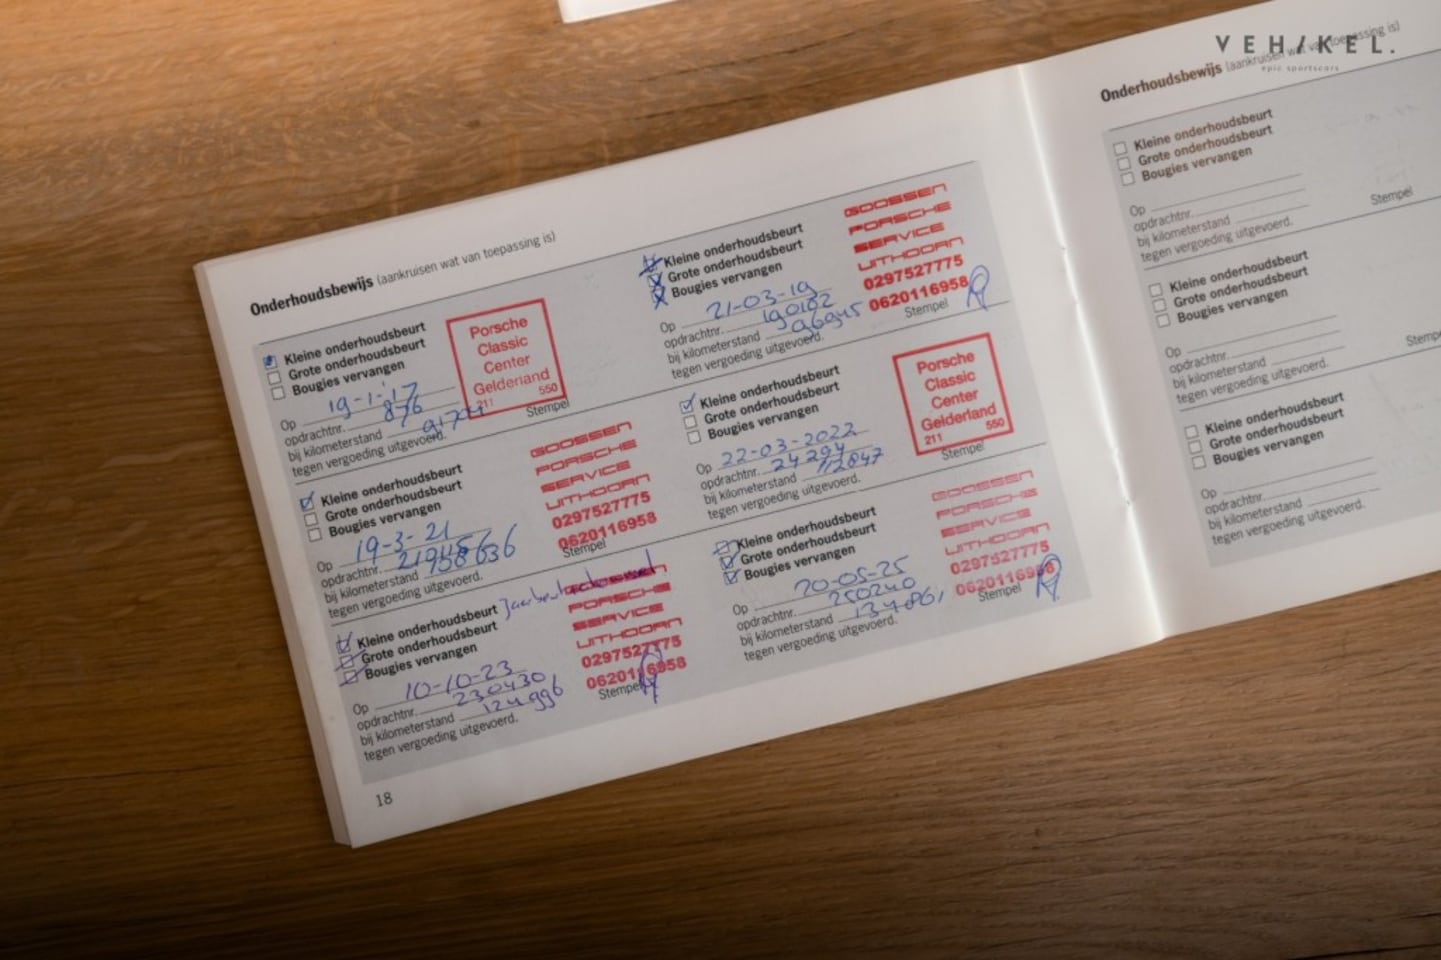 VEH/KEL.
epic sportscars
Onderhoudsbewijs (aankruisen wat van toepassing is)
Kleine onderhoudsbeurt
Grote onderhoudsbeurt
Bougies vervangen
Op 19-1-'17
opdrachtnr. 876
bij kilometerstand 91704
tegen vergoeding uitgevoerd.
Porsche
Classic
Center
Gelderland
211 550
Stempel
Kleine onderhoudsbeurt
Grote onderhoudsbeurt
Bougies vervangen
Op 19-3-21
opdrachtnr.
bij kilometerstand
tegen vergoeding uitgevoerd.
GOOSSEN
PORSCHE
SERVICE
UITHOORN
0297527775
0620116958
Stempel
Kleine onderhoudsbeurt
Grote onderhoudsbeurt
Bougies vervangen
Op 10-10-23
opdrachtnr. 230430
bij kilometerstand 124996
tegen vergoeding uitgevoerd.
GOOSSEN
PORSCHE
SERVICE
UITHOORN
0297527775
0620116958
Stempel
18
Kleine onderhoudsbeurt
Grote onderhoudsbeurt
Bougies vervangen
Op 21-03-19
opdrachtnr. 190182
bij kilometerstand 96945
tegen vergoeding uitgevoerd.
GOOSSEN
PORSCHE
SERVICE
UITHOORN
0297527775
0620116958
Stempel
Kleine onderhoudsbeurt
Grote onderhoudsbeurt
Bougies vervangen
Op 22-03-2022
opdrachtnr. 24294
bij kilometerstand 112847
tegen vergoeding uitgevoerd.
Porsche
Classic
Center
Gelderland
211 550
Stempel
Kleine onderhoudsbeurt
Grote onderhoudsbeurt
Bougies vervangen
Op 20-05-25
opdrachtnr. 250240
bij kilometerstand
tegen vergoeding uitgevoerd.
GOOSSEN
PORSCHE
SERVICE
UITHOORN
0297527775
0620116958
Stempel
Onderhoudsbewijs (aankruisen wat van toepassing is)
Kleine onderhoudsbeurt
Grote onderhoudsbeurt
Bougies vervangen
Op
opdrachtnr.
bij kilometerstand
tegen vergoeding uitgevoerd.
Stempel
Kleine onderhoudsbeurt
Grote onderhoudsbeurt
Bougies vervangen
Op
opdrachtnr.
bij kilometerstand
tegen vergoeding uitgevoerd.
Kleine onderhoudsbeurt
Grote onderhoudsbeurt
Bougies vervangen
Op
opdrachtnr.
bij kilometerstand
tegen vergoeding uitgevoerd.